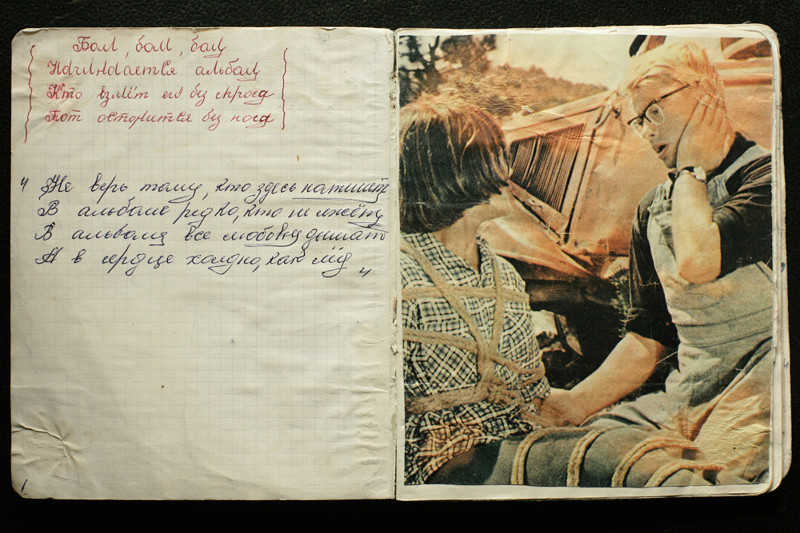 Бом, бом, бом
Начинается альбом
Кто возмёт его без спроса
Тот останится без носа
" Не верь тому, кто здесь напишет
В альбоме редко, кто не лжёт
В альбоме все любовью дышать
А в сердце холодно, как лёд "